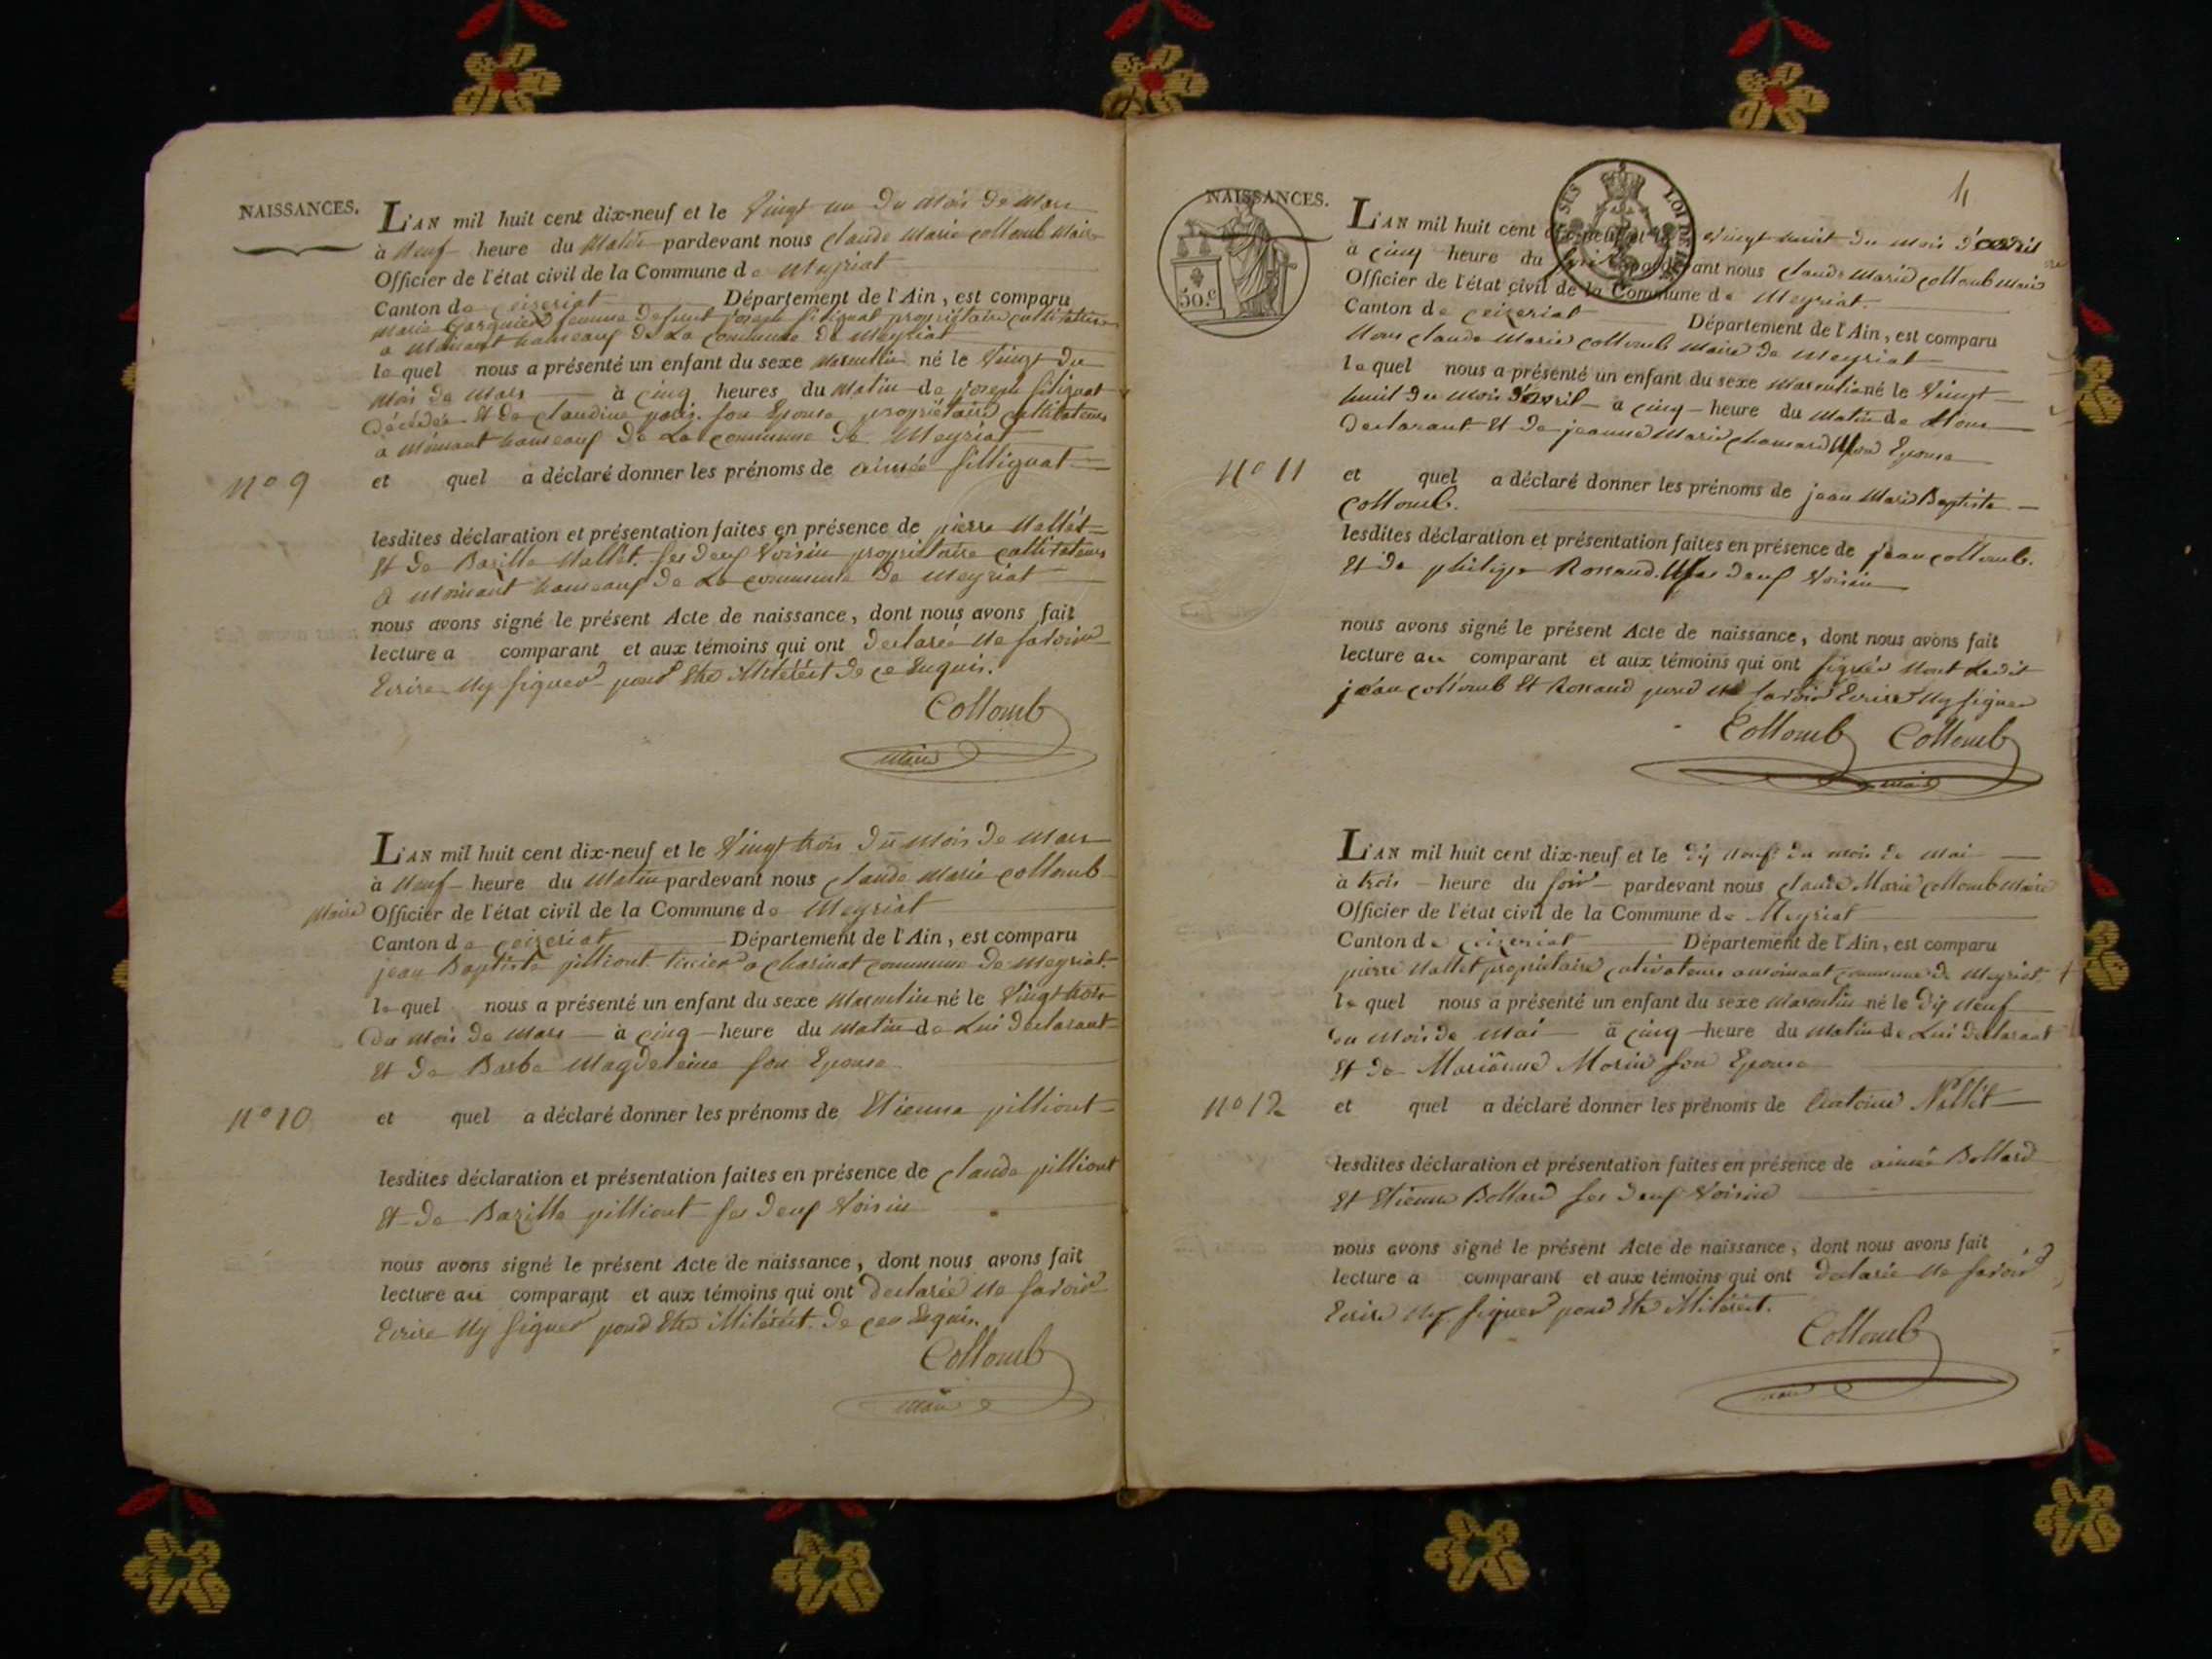 NAISSANCES.
L'AN mil huit cent dix-neuf et le Vingt un du Mois de Mars
à Neuf heure du Matin pardevant nous Claude Marie Collomb Maire
Officier de l'état civil de la Commune de Meyriat
Canton de Ceizeriat Département de l'Ain, est comparu
Marie femme defunt joseph propriétaire cultivateur
a Moinant hameauf de La Commune de Meyriat
le quel nous a présenté un enfant du sexe Masculin né le Vingt du
Mois de Mars à Cinq heures du Matin de joseph fillignat
décédée Et de Claudine son Epouse propriétaire cultivateurs
a Moinant hameauf de La Commune de Meyriat
N° 9
et quel a déclaré donner les prénoms de aimée fillignat
lesdites déclaration et présentation faites en présence de pierre Nallet
Et de Bazille Nallet. ses deuf Voisin propriétaire cultivateurs
a Moinant hameauf de La commune de Meyriat
nous avons signé le présent Acte de naissance, dont nous avons fait
lecture a comparant et aux témoins qui ont declarée Ne savoir
Ecrire Ny signer pour Etre illitéréit de ce Enquis.
Collomb
Maire
L'AN mil huit cent dix-neuf et le Vingt trois du Mois de Mars
à Neuf heure du Matin pardevant nous Claude Marie Collomb
Maire Officier de l'état civil de la Commune de Meyriat
Canton de Ceizeriat Département de l'Ain, est comparu
jean Baptiste pilliont a Charinat commune de Meyriat.
le quel nous a présenté un enfant du sexe Masculin né le Vingt trois
du Mois de Mars à Cinq heure du Matin de Lui declarant
Et de Barbe Magdeleine son Epouse
N° 10
et quel a déclaré donner les prénoms de Etienne pilliont
lesdites déclaration et présentation faites en présence de Claude pilliont
Et de Bazille pilliont ses deuf Voisin
nous avons signé le présent Acte de naissance, dont nous avons fait
lecture au comparant et aux témoins qui ont declarée Ne savoir
Ecrire Ny signer pour Etre illitéréit de ce Enquis.
Collomb
Maire
4
NAISSANCES.
50.c
SES LOI DE
L'AN mil huit cent dix-neuf et le Vingt huit du mois d'avril
à Cinq heure du soir pardevant nous Claude Marie Collomb Maire
Officier de l'état civil de la Commune de Meyriat
Canton de Ceizeriat Département de l'Ain, est comparu
Nous Claude Marie Collomb Maire de Meyriat
le quel nous a présenté un enfant du sexe Masculin né le Vingt
huit du Mois d'avril à Cinq heure du Matin de Nous
declarant Et de jeanne Marie Epouse
N° 11
et quel a déclaré donner les prénoms de jean Marie Baptiste
Collomb.
lesdites déclaration et présentation faites en présence de jean Collomb.
Et de philippe ses deuf Voisin
nous avons signé le présent Acte de naissance, dont nous avons fait
lecture au comparant et aux témoins qui ont signés Nont Ledit
jean Collomb Et pour Ne savoir Ecrire Ny signer
Collomb Collomb
Maire
L'AN mil huit cent dix-neuf et le dij Neuf du mois de Mai
à trois heure du soir pardevant nous Claude Marie Collomb Maire
Officier de l'état civil de la Commune de Meyriat
Canton de Ceizeriat Département de l'Ain, est comparu
pierre Nallet propriétaire cultivateurs a moinant commune de Meyriat
le quel nous a présenté un enfant du sexe Masculin né le dij Neuf
du Mois de Mai à Cinq heure du Matin de Lui declarant
Et de Marianne Morin son Epouse
N° 12
et quel a déclaré donner les prénoms de Antoine Nallet
lesdites déclaration et présentation faites en présence de aimée Bollard
Et Etienne Bollard ses deuf Voisin
nous avons signé le présent Acte de naissance, dont nous avons fait
lecture a comparant et aux témoins qui ont declarée Ne savoir
Ecrire Ny signer pour Etre illitéréit.
Collomb
Maire